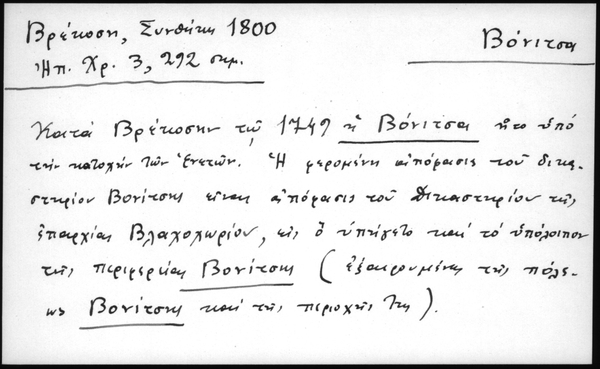 Βρέκοση, Συνθήκη 1800
Βόνιτσα
Ἠπ. Χρ. 3, 292 σημ.
Κατά Βρέκοσην τῷ 1749 ἡ Βόνιτσα ἦτο ὑπό
τήν κατοχήν τῶν Ἑνετῶν. Ἡ φερομένη ἀπόφασις τοῦ δικα-
στηρίου Βονίτσης εἶναι ἀπόφασις τοῦ Δικαστηρίου τῆς
ἐπαρχίας Βλαχοχωρίου, εἰς ὅ ὑπήγετο καί τό ὑπόλοιπον
τῆς περιφερείας Βονίτσης (ἐξαιρουμένης τῆς πόλε-
ως Βονίτσης καί τῆς περιοχῆς της).